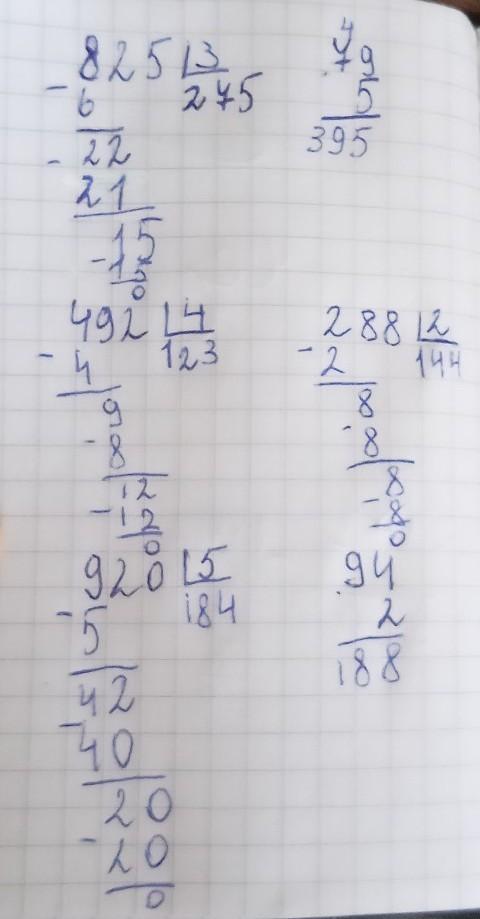 825 3
- 6 275
- 22
21
- 15
15
0
4
79
5
395
492 4
- 4 123
9
- 8
12
- 12
0
288 2
- 2 144
8
- 8
- 8
8
0
920 5
- 5 184
42
- 40
20
- 20
0
94
2
188